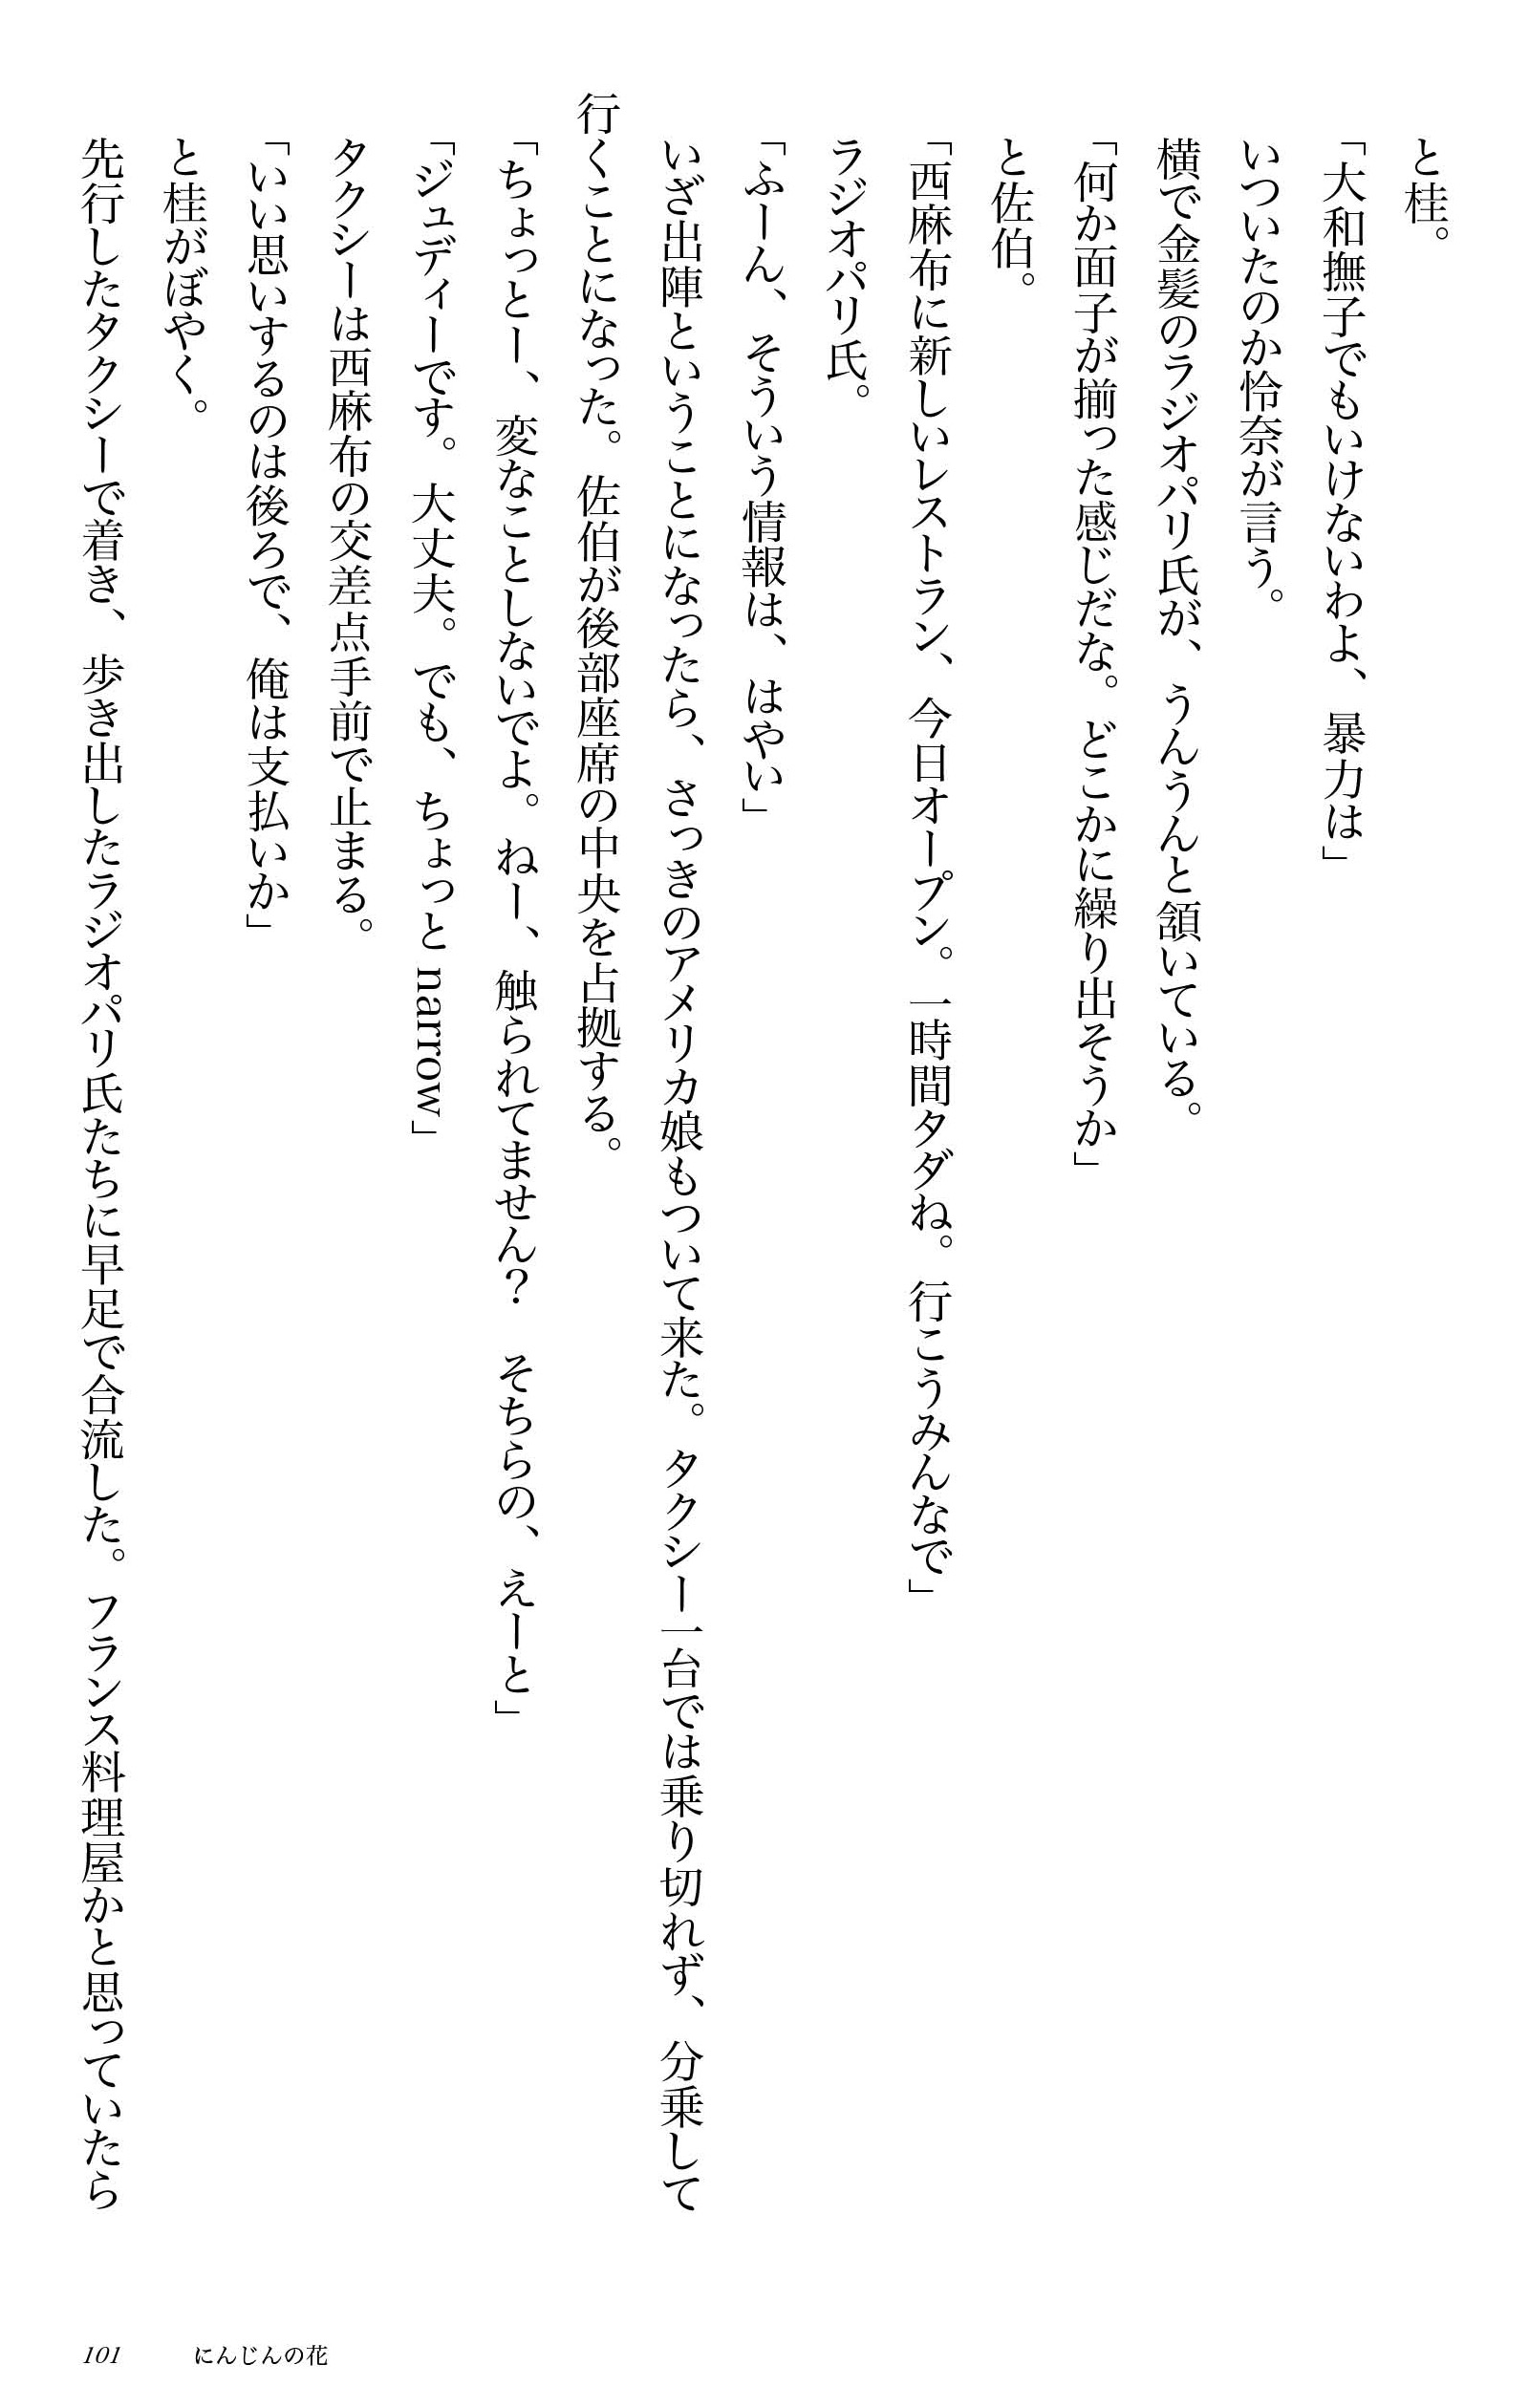 と桂。
「大和撫子でもいけないわよ、暴力は」
いついたのか怜奈が言う。
横で金髪のラジオパリ氏が、うんうんと頷いている。
「何か面子が揃った感じだな。どこかに繰り出そうか」
と佐伯。
「西麻布に新しいレストラン、今日オープン。一時間タダね。行こうみんなで」
ラジオパリ氏。
「ふーん、そういう情報は、はやい」
いざ出陣ということになったら、さっきのアメリカ娘もついて来た。タクシー一台では乗り切れず、分乗して
行くことになった。佐伯が後部座席の中央を占拠する。
「ちょっとー、変なことしないでよ。ねー、触られてません？　そちらの、えーと」
「ジュディーです。大丈夫。でも、ちょっと narrow」
タクシーは西麻布の交差点手前で止まる。
「いい思いするのは後ろで、俺は支払いか」
と桂がぼやく。
先行したタクシーで着き、歩き出したラジオパリ氏たちに早足で合流した。フランス料理屋かと思っていたら
101 にんじんの花